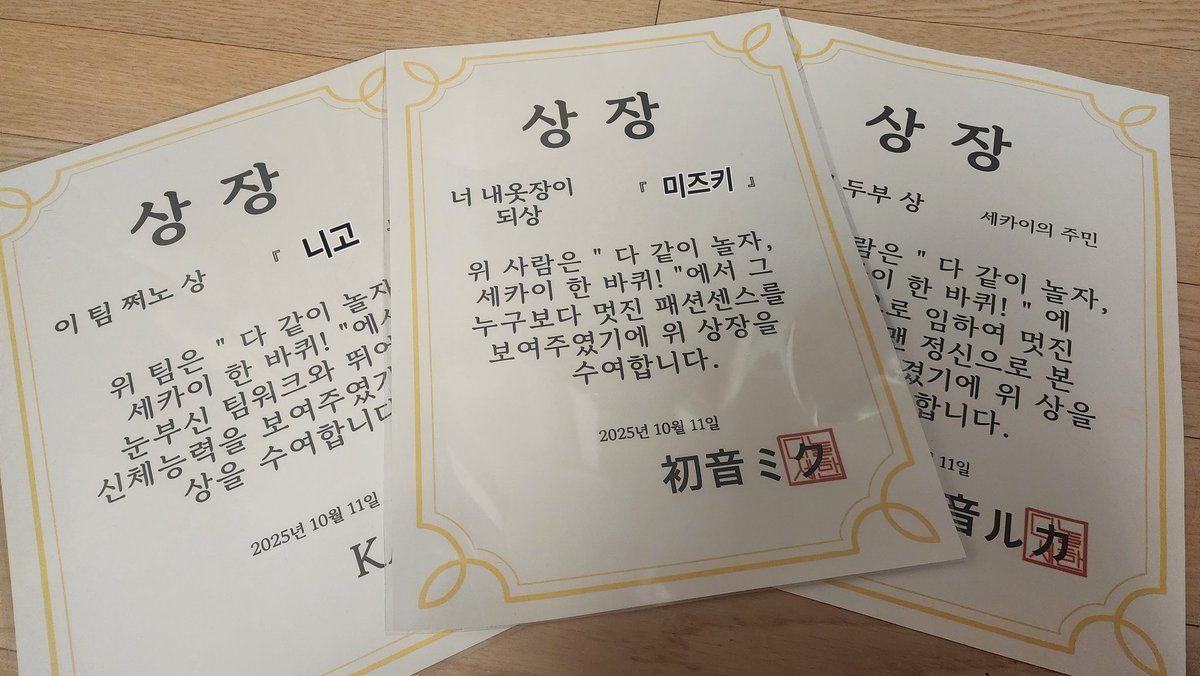 상 장
이 팀 쩌노 상
『 니고
위 팀은 " 다 같이 놀자,
세카이 한 바퀴! "에서
눈부신 팀워크와 뛰어
신체능력을 보여주였기
상을 수여합니다
2025년 10월 11일
상 장
너 내옷장이
되상
『 미즈키 』
위 사람은 " 다 같이 놀자,
세카이 한 바퀴! "에서 그
누구보다 멋진 패션센스를
보여주였기에 위 상장을
수여합니다.
2025년 10월 11일
初音ミク
상 장
두부 상
세카이의 주민
람은 " 다 같이 놀자,
이 한 바퀴! " 에
으로 임하여 멋진
맨 정신으로 본
겼기에 위 상을
합니다.
11일
音ルカ